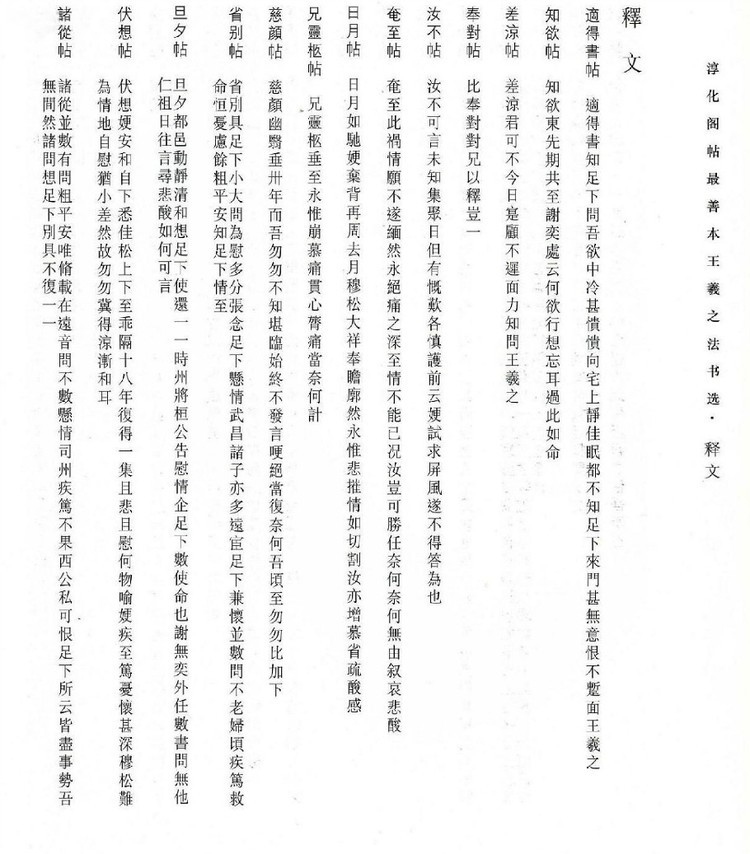 淳化阁帖最善本王羲之法书选·释文
釋文
適得書帖 適得書知足下問吾欲中冷甚憒憒向宅上靜佳眠都不知足下來門甚無意恨不蹔面王羲之
知欲帖 知欲東先期共至謝奕處云何欲行想忘耳過此如命
差涼帖 差涼君可不今日寔顧不遲面力知問王羲之
奉對帖 比奉對對兄以釋豈一
汝不帖 汝不可言未知集聚日但有慨歎各慎護前云嫂試求屏風遂不得答為也
奄至帖 奄至此禍情願不遂緬然永絕痛之深至情不能已况汝豈可勝任奈何奈何無由叙哀悲酸
日月帖 日月如馳嫂棄背再周去月穆松大祥奉瞻廓然永惟悲摧情如切割汝亦增慕省疏酸感
兄靈柩帖 兄靈柩垂至永惟崩慕痛貫心膂痛當奈何計
慈顔帖 慈顔幽翳垂卅年而吾勿勿不知堪臨始終不發言哽絕當復奈何吾頃至勿勿比加下
省别帖 省別具足下小大問為慰多分張念足下懸情武昌諸子亦多遠宦足下兼懷並數問不老婦頃疾篤救
命恒憂慮餘粗平安知足下情至
旦夕帖 旦夕都邑動靜清和想足下使還一一時州將桓公告慰情企足下數使命也謝無奕外任數書問無他
仁祖日往言尋悲酸如何可言
伏想帖 伏想嫂安和自下悉佳松上下至乖隔十八年復得一集且悲且慰何物喻嫂疾至篤憂懷甚深穆松難
為情地自慰猶小差然故勿勿冀得涼漸和耳
諸從帖 諸從並數有問粗平安唯脩載在遠音問不數懸情司州疾篤不果西公私可恨足下所云皆盡事勢吾
無間然諸問想足下別具不復一一